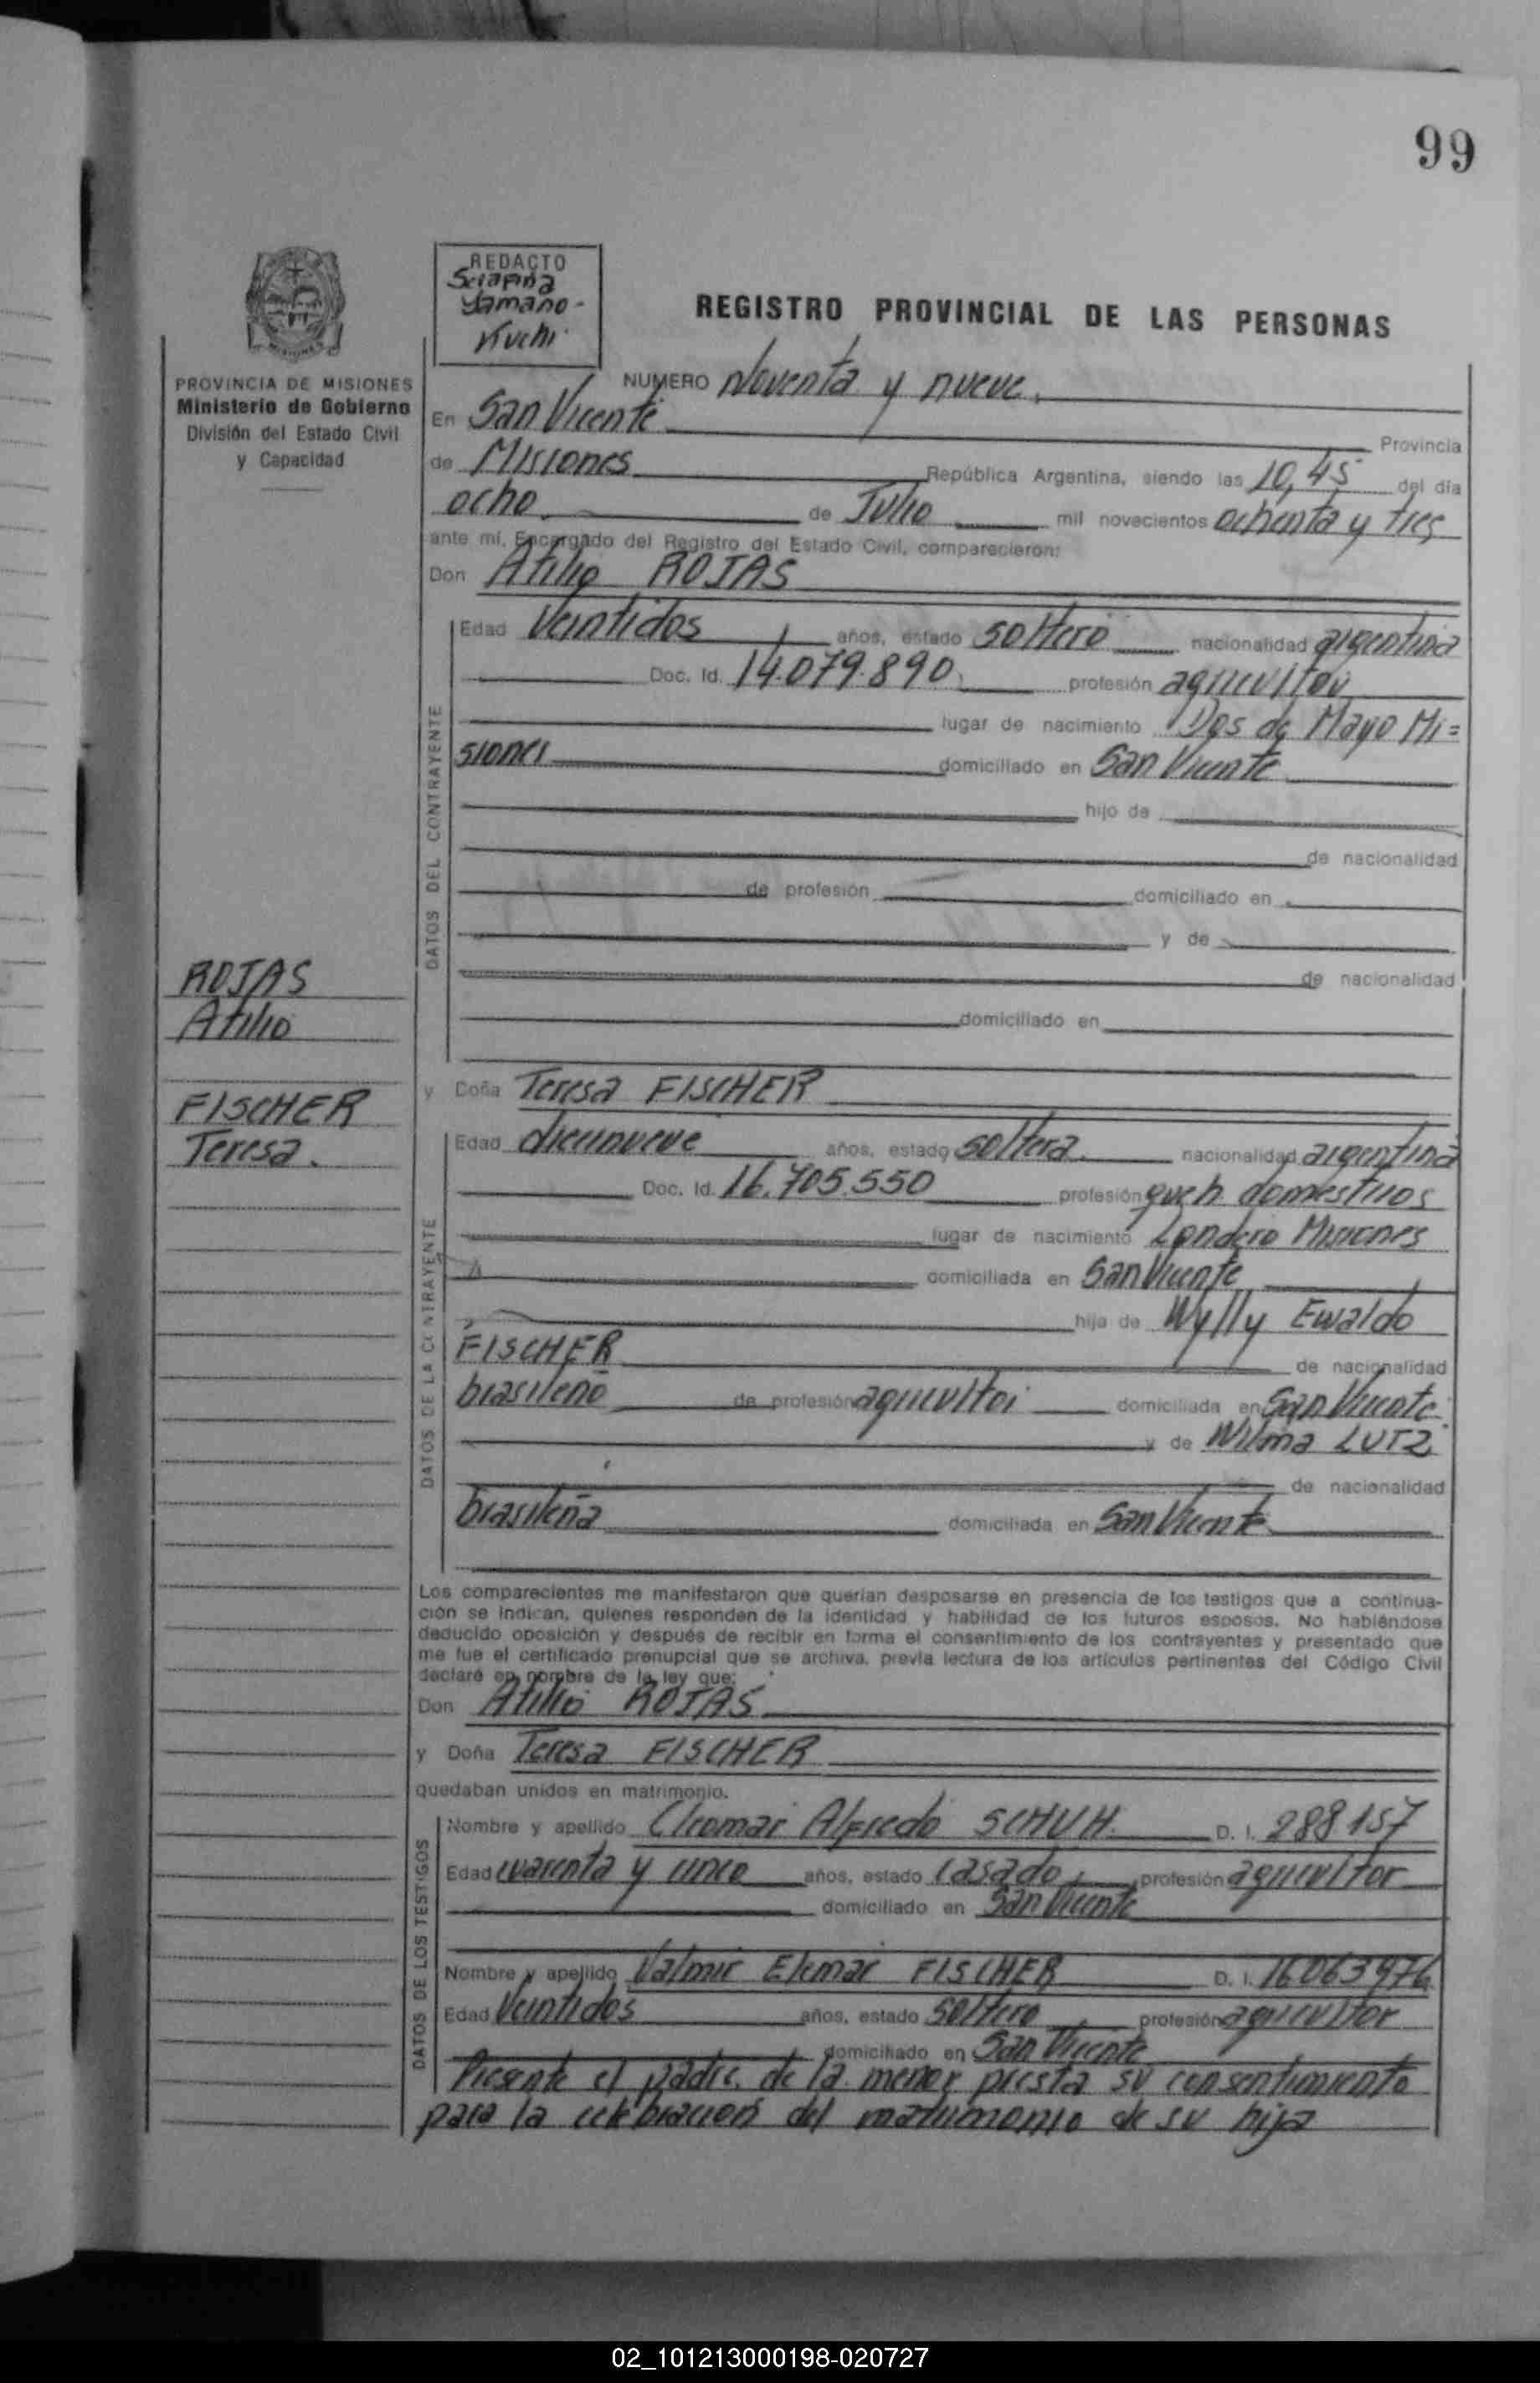 99
REDACTO
Yamano-
Kuchi
REGISTRO PROVINCIAL DE LAS PERSONAS
PROVINCIA DE MISIONES
Ministerio de Gobierno
División del Estado Civil
y Capacidad
NUMERO Noventa y nueve
En San Vicente Provincia
de Misiones República Argentina, siendo las 10,45 del día
ocho de Julio mil novecientos ochenta y tres
ante mí, Encargado del Registro del Estado Civil, comparecieron:
Don Atilio ROJAS
Edad Veintidos años, estado soltero nacionalidad argentina
Doc. Id. 14.079.890 profesión agricultor
lugar de nacimiento Dos de Mayo Mi=
siones domiciliado en San Vicente
hijo de
de nacionalidad
de profesión domiciliado en
y de
de nacionalidad
domiciliado en
DATOS DEL CONTRAYENTE
ROJAS
Atilio
FISCHER
Teresa.
y Doña Teresa FISCHER
Edad diecinueve años, estado soltera nacionalidad argentina
Doc. Id. 16.705.550 profesión queh. domesticos
lugar de nacimiento Londero Misiones
domiciliada en San Vicente
hija de Wylly Ewaldo
FISCHER de nacionalidad
brasileño de profesión agricultor domiciliada en San Vicente
y de Wilma LUTZ
de nacionalidad
brasileña domiciliada en San Vicente
DATOS DE LA CONTRAYENTE
Los comparecientes me manifestaron que querían desposarse en presencia de los testigos que a continua-
ción se indican, quienes responden de la identidad y habilidad de los futuros esposos. No habiéndose
deducido oposición y después de recibir en forma el consentimiento de los contrayentes y presentado que
me fue el certificado prenupcial que se archiva, previa lectura de los artículos pertinentes del Código Civil
declaré en nombre de la ley que:
Don Atilio ROJAS
y Doña Teresa FISCHER
quedaban unidos en matrimonio.
Nombre y apellido Cleomar Alfredo SCHUH D. I. 288157
Edad cuarenta y cinco años, estado casado profesión agricultor
domiciliado en San Vicente
Nombre y apellido Valmir Elemar FISCHER D. I. 16063976
Edad Veintidos años, estado soltero profesión agricultor
domiciliado en San Vicente
DATOS DE LOS TESTIGOS
Presente el padre de la menor presta su consentimiento
para la celebracion del matrimonio de su hija
02_101213000198-020727